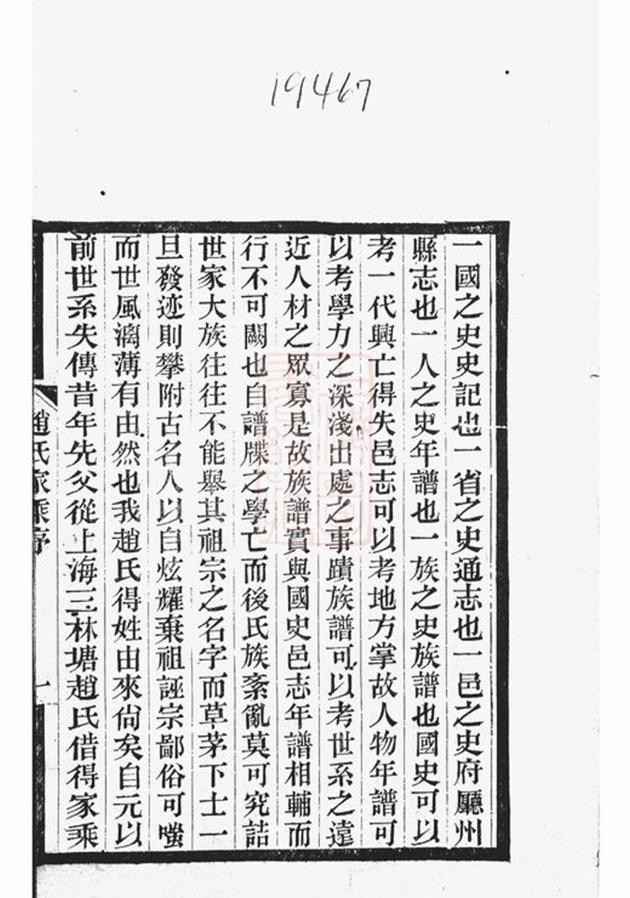 19467
一國之史史記也一省之史通志也一邑之史府廳州
縣志也一人之史年譜也一族之史族譜也國史可以
考一代興亡得失邑志可以考地方掌故人物年譜可
以考學力之深淺出處之事蹟族譜可以考世系之遠
近人材之眾寡是故族譜實與國史邑志年譜相輔而
行不可闕也自譜牒之學亡而後氏族紊亂莫可究詰
世家大族往往不能舉其祖宗之名字而草茅下士一
旦發迹則攀附古名人以自炫耀棄祖誣宗鄙俗可嗤
而世風漓薄有由然也我趙氏得姓由來尙矣自元以
前世系失傳昔年先父從上海三林塘趙氏借得家乘
趙氏家乘序
一